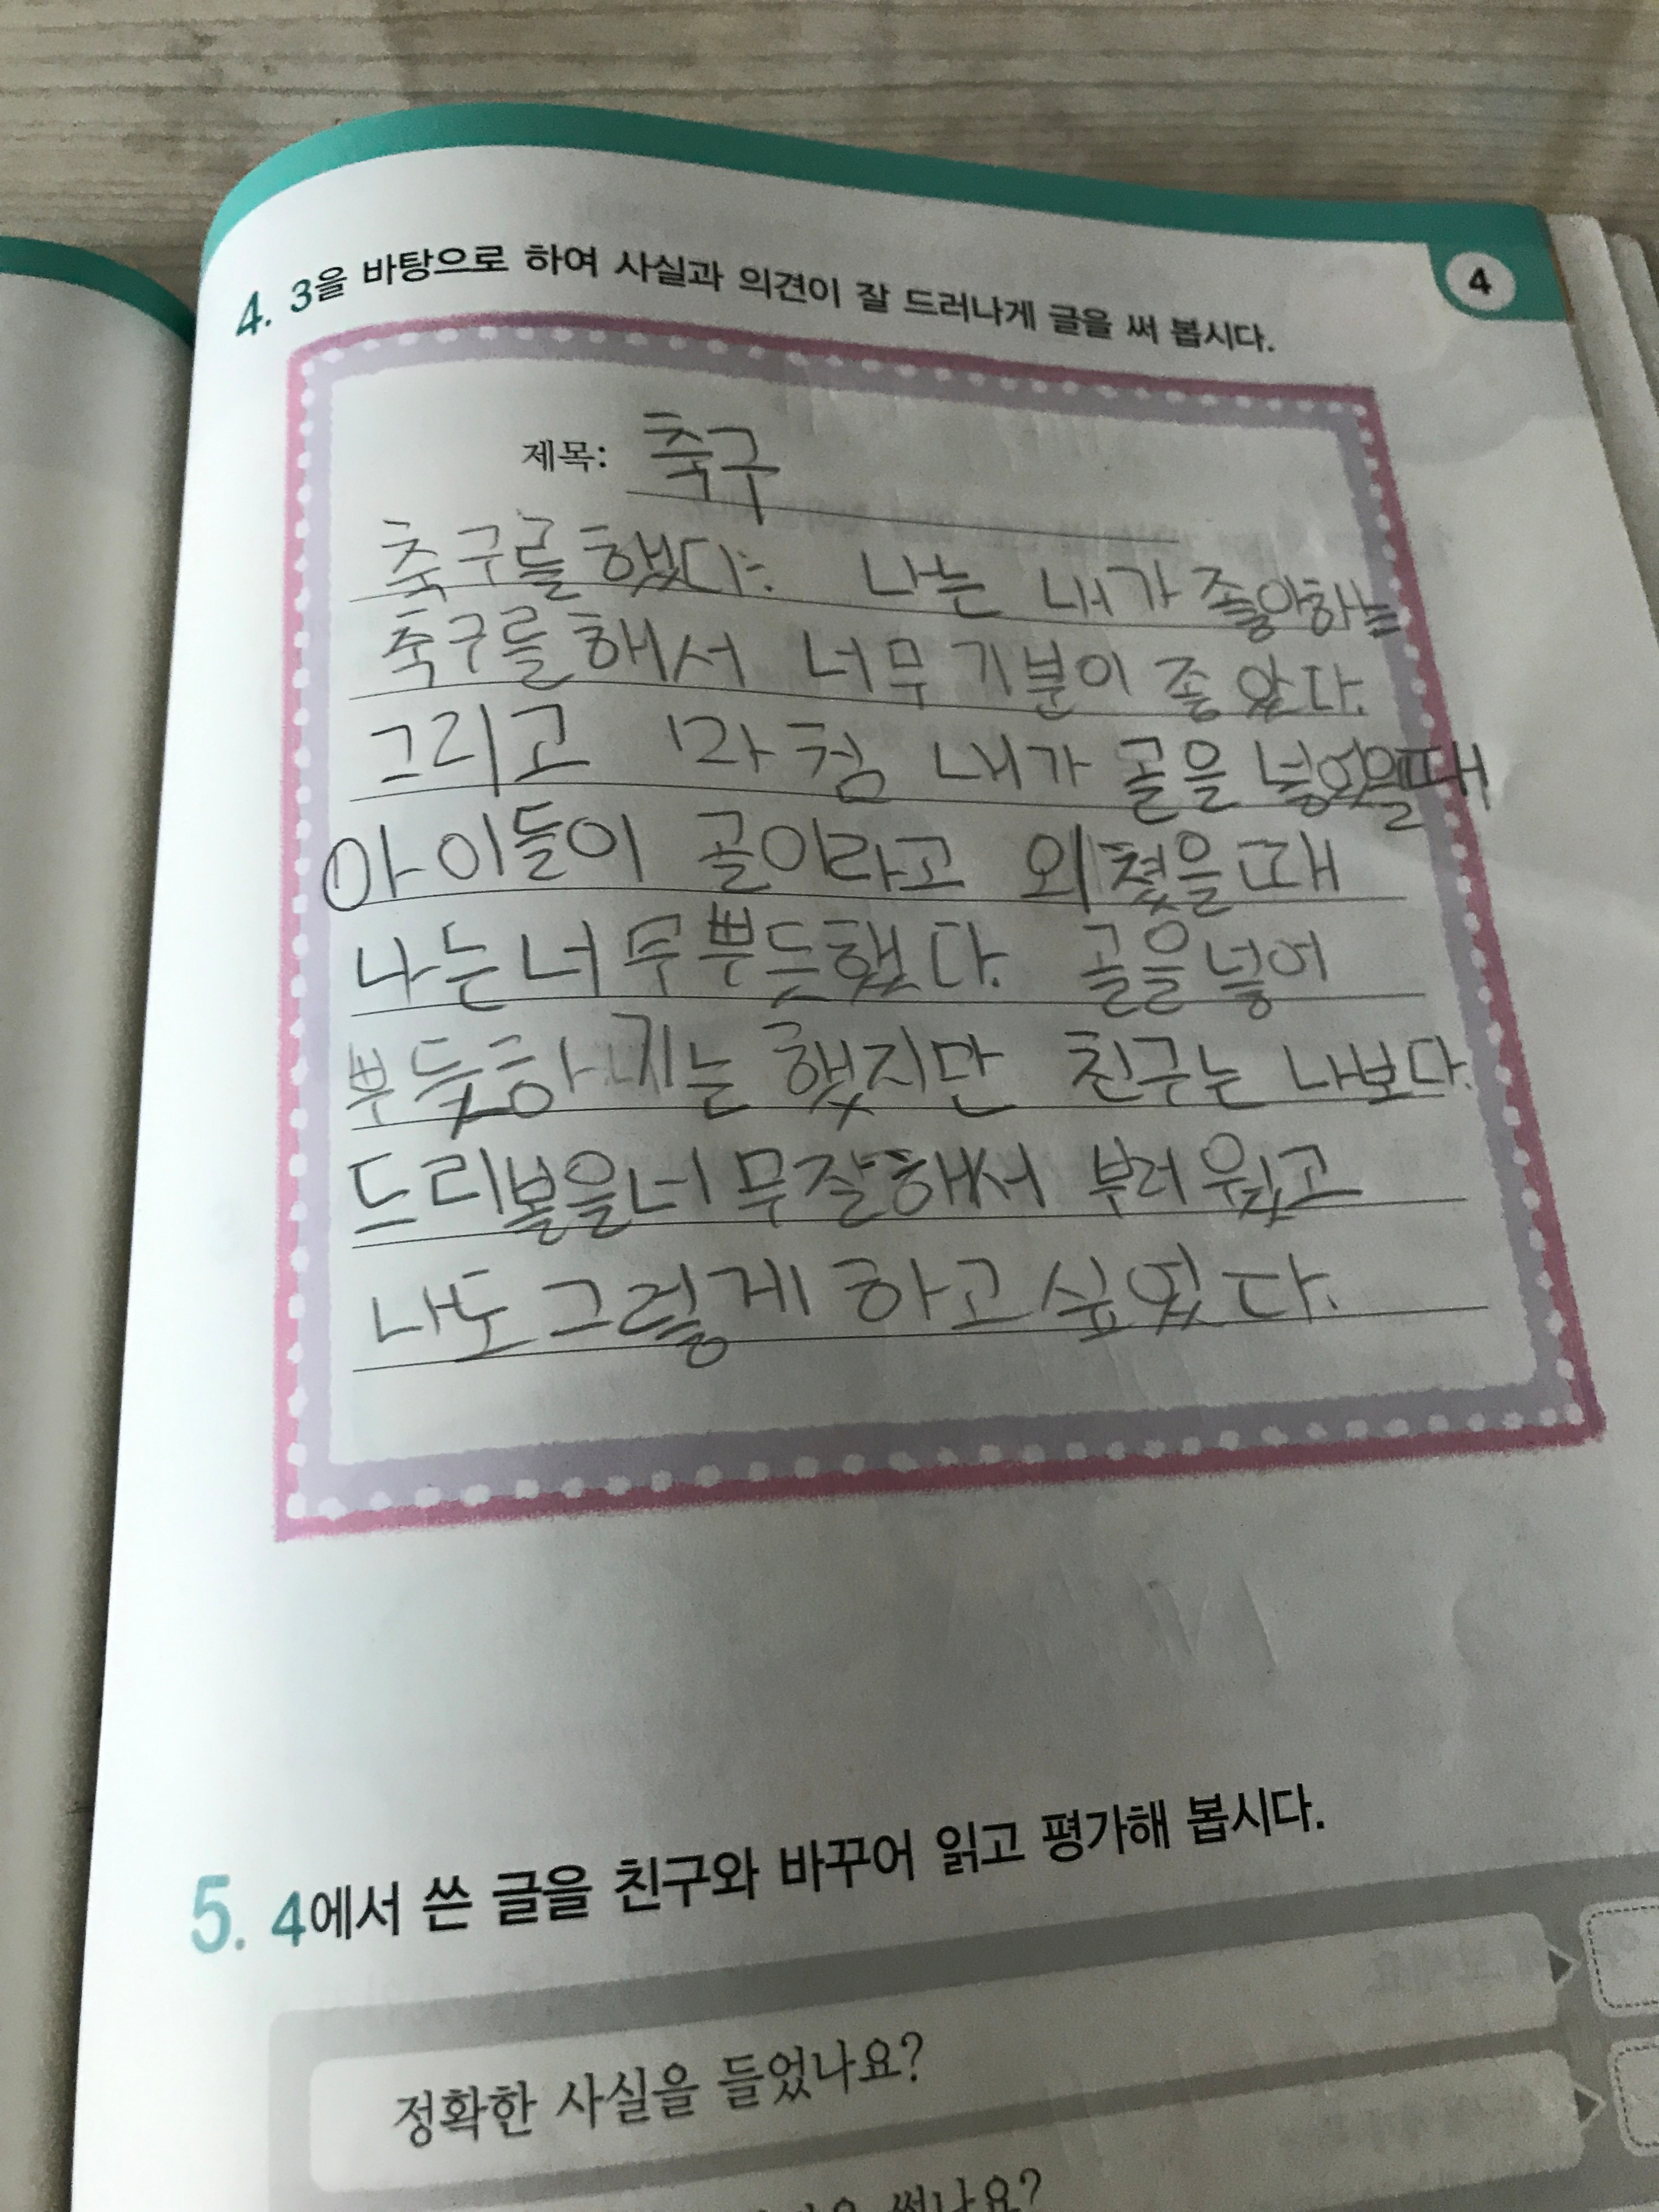 4
4. 3을 바탕으로 하여 사실과 의견이 잘 드러나게 글을 써 봅시다.
제목: 축구
축구를 했다. 나는 내가 좋아하는
축구를 해서 너무 기분이 좋았다.
그리고 마침 내가 골을 넣었을때
아이들이 골이라고 외쳤을때
나는 너무 뿌듯했다. 골을 넣어
뿌듯하기는 했지만 친구는 나보다.
드리볼을 너무 잘해서 부러웠고
나도 그렇게 하고 싶었다.
5. 4에서 쓴 글을 친구와 바꾸어 읽고 평가해 봅시다.
정확한 사실을 들었나요?
썼나요?